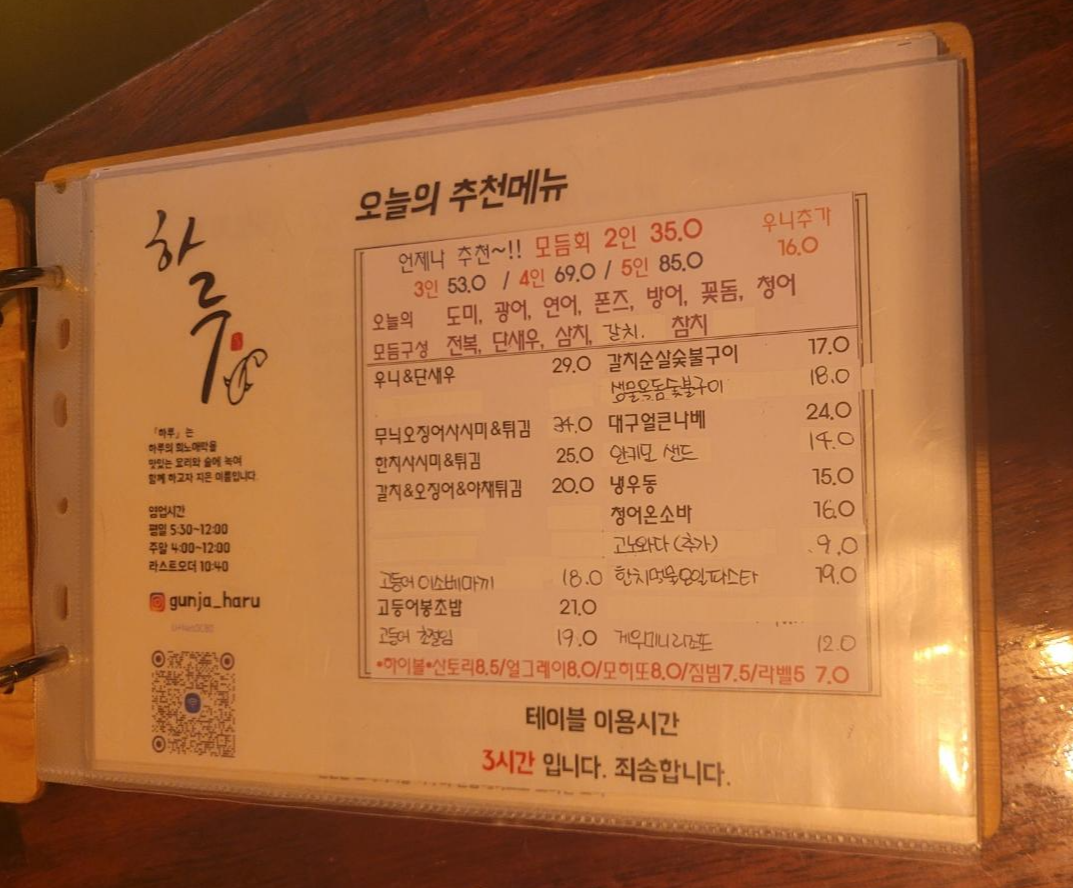 하루
「하루」는
하루의 희노애락을
맛있는 요리와 술에 녹여
함께 하고자 지은 이름입니다.
영업시간
평일 5:30~12:00
주말 4:00~12:00
라스트오더 10:40
gunja_haru
오늘의 추천메뉴
언제나 추천~!! 모듬회 2인 35.0
3인 53.0 / 4인 69.0 / 5인 85.0
우니추가
16.0
오늘의 도미, 광어, 연어, 폰즈, 방어, 꽃돔, 청어
모듬구성 전복, 단새우, 삼치, 갈치. 참치
우니&단새우 29.0
무늬오징어사시미&튀김 34.0
한치사시미&튀김 25.0
갈치&오징어&야채튀김 20.0
고등어 이소베마끼 18.0
고등어봉초밥 21.0
고등어 초절임 19.0
갈치순살숯불구이 17.0
생물옥돔숯불구이 18.0
대구얼큰나베 24.0
안키모 샌드 14.0
냉우동 15.0
청어온소바 16.0
고노와다 (추가) 9.0
한치먹물오일파스타 19.0
게우미니리조또 12.0
•하이볼•산토리8.5/얼그레이8.0/모히또8.0/짐빔7.5/라벨5 7.0
테이블 이용시간
3시간 입니다. 죄송합니다.